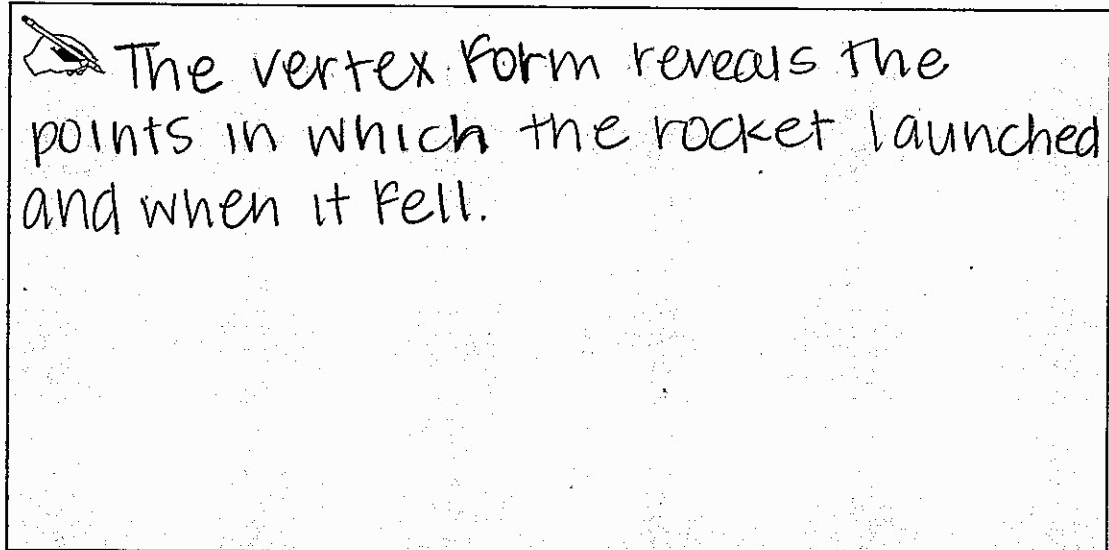 The vertex form reveals the
points in which the rocket launched
and when it fell.